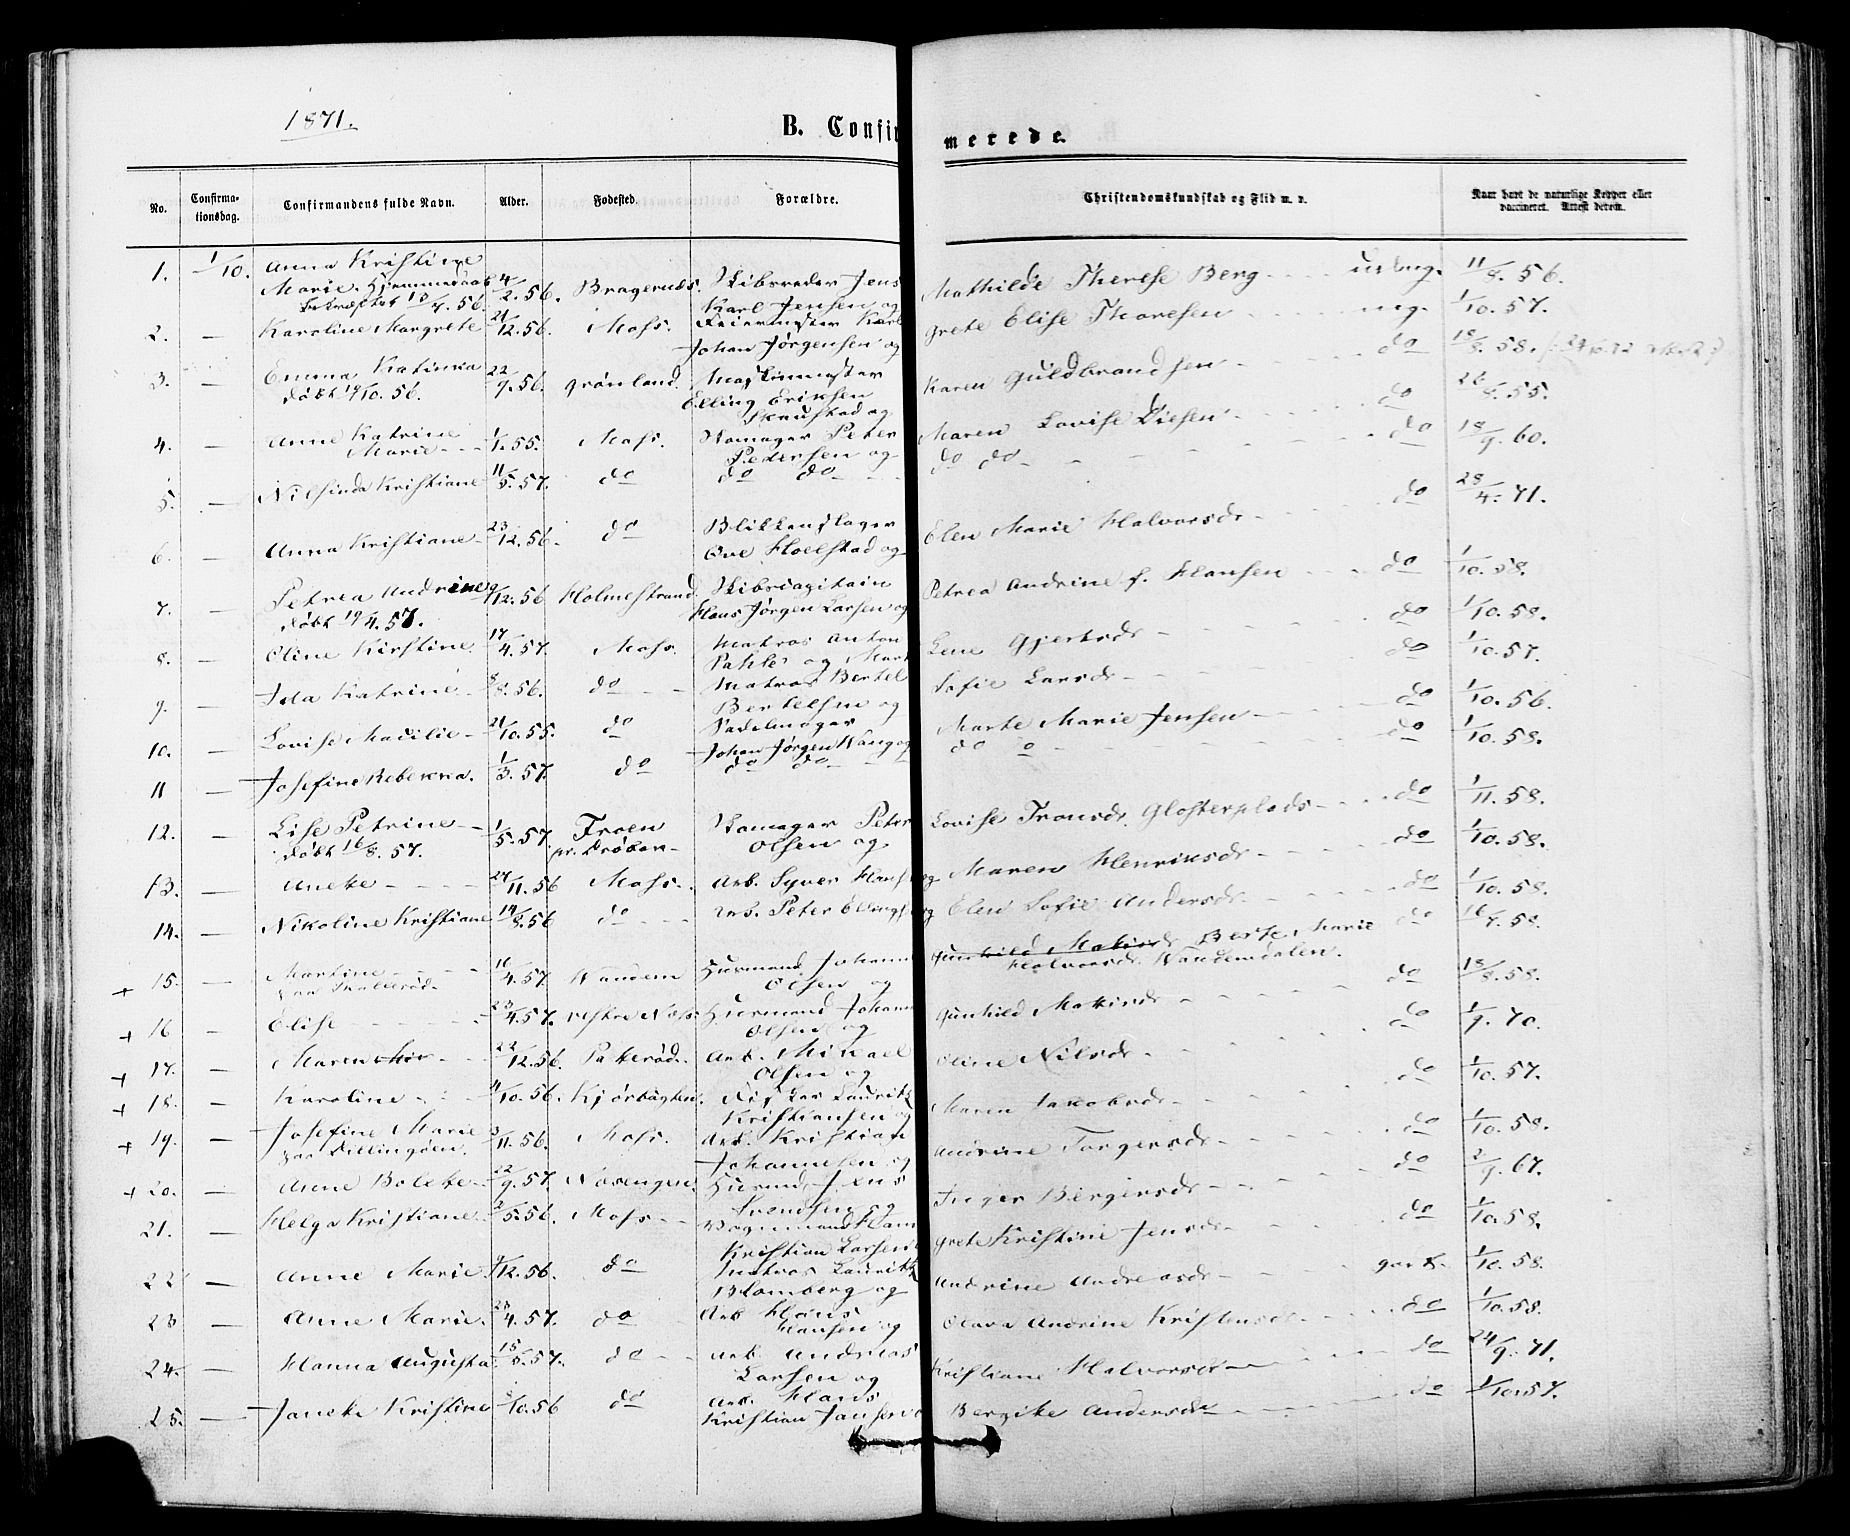 1871.
B. Confir merede.
No. Confirma-tionsdag. Confirmandens fulde Navn. Alder. Fødested. Forældre. Christendomskundskab og Flid m. v. Naar havt de naturlige Kopper eller vaccineret. Attest derom.
1. 1/10. Anna Kristine
Marie. Hjemmedaab 4/2.56. Bragernæs. Skibsreder Jens Mathilde Therese Berg - - - - 11/8. 56.
Bekræftet 13/4. 56. Karl Jensen og
2. — Karoline Margrete 21/12.56. Moss. Feiermester Karl Grete Elise Thoresen - - - mg. 1/10. 57.
Johan Jørgensen og
3. — Emma Katinka 22/9.56. Grønland. Maskinmester Karen Guldbrandsen - do 18/8. 58.
døbt 19/10. 56. Elling Eriksen
Skrustad og
4. — Anne Katrine 1/1.55. Moss. Skomager Peter Maren Lovise Diesen - do 26/8. 55.
Marie - - - Pedersen og
5. — Nilsinda Kristiane 11/5.57. do do do - - - do do - - - do 18/9. 60.
6. — Anna Kristiane - 23/12.56. do Blikkenslager Elen Marie Halvorsdr - do 28/4. 71.
Ove Hoelstad og
7. — Petrea Andrine 9/12.56 Holmestrand. Skibscapitain Petrea Andrine f. Hansen - - do 1/10. 58.
døbt 19/4. 57. Hans Jørgen Larsen og
8. — Oline Kirstine 17/4.57. Moss. Matros Anton Lene Gjertsdr - do 1/10. 58.
9. — Ida Katrine - 8/8.56. do - - Matros Bertel Sofie Larsdr - - - do 1/10. 57.
Bertelsen og
10. — Lovise Madilie - 21/10.55. do Sadelmager Marte Marie Jensen - do 1/10. 56.
Johan Jørgen Wang og
11 — Josefine Rebekka. 1/3.57. do do do - - do o - - - do 1/10. 58.
12. — Lise Petrine - 1/5.57. Froen Skomager Peter Lovise Tronsdr. Glosterplads - - do 1/11. 58.
døbt 16/8. 57. pr. Drøbak - Olsen og
13. — Aneke - - - - 24/11.56 Moss. Arb. Syver Hans Maren Henriksdr - do 1/10. 58.
14. — Nikoline Kristiane 14/8.56 do - - - Arb. Peter Ellingsen og Elen Sofie Andersdr. - do 1/10. 58.
15. — Martine - - - 16/4.57. Wandem Huusmand Johann Gunhild Berte Marie do 16/7. 58.
Olsen og Halvorsdr. Wandemdalen.
+ 16 — Elise - - - - 23/4.57. vestre Næss Huusmand Johann Gunhild - do 18/8. 58.
Olsen og
+ 17. — Maren - 22/12.56. Arb. Mikael Oline Nilsdr - do 1/9. 70.
Olsen og
+ 18. — Karoline - - 4/10.56. Fisker Lauritz Maren Jakobsdr - do 1/10. 57.
Kristiansen og
+ 19. — Josefine Marie 3/11.56. Moss. Arb. Kristian Andrine Torgersdr - do 1/10. 58.
paa Dillingøen. Johannesen og
+ 20. — Anne Bolette - 22/9.57. Huusmd. Jens Inger Birgersdr - - do 2/9. 67.
Svendsen og
21. — Helga Kristiane 2/5.56. Moss - - Vognmand Hans Grete Kristine Jensdr - - do 1/10. 58.
Kristian Larsen
22 — Anne Marie. 4/12.56. do Matros Lauritz Andrine Andreasdr - - 1/10. 58.
Blomberg og
23 — Anne Marie. 28/4.57. do Arb Hans Olava Andrine Kristensdr - do 1/10. 58.
Hansen og
24. — Hanna Augusta 15/5.57. do - - Arb. Andreas Kristiane Halvorsdr - do 24/9. 71.
Larsen og
25. — Janeke Kristine 8/10.56 do Arb. Hans Bergite Andersdr - - - do 1/10.57.
Kristian Jansen